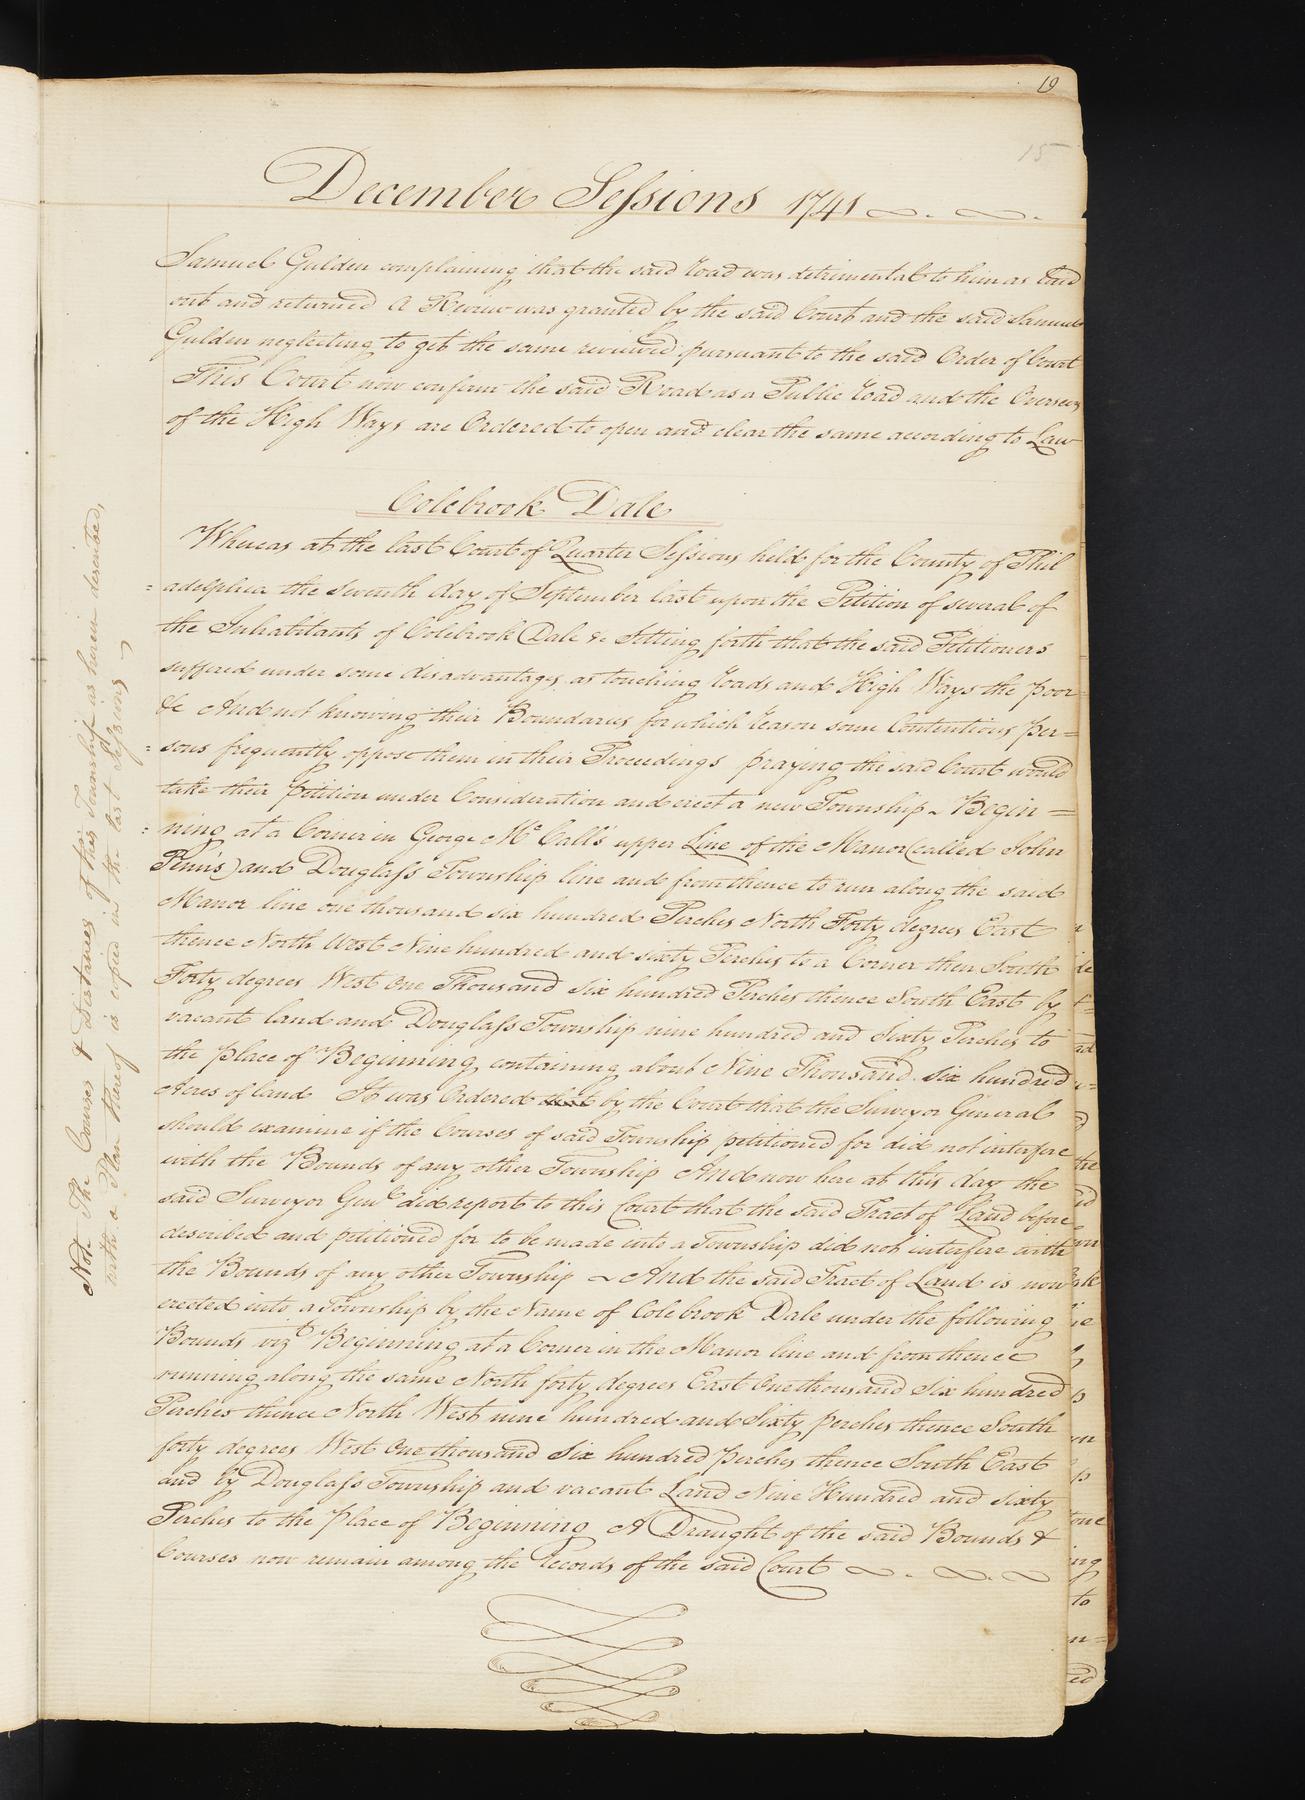 19
15
December Sessions 1741
Samuel Gulden complaining that the said Road was detrimental to him as laid
out and returned A Review was granted by the said Court and the said Samuel
Gulden neglecting to get the same reviewed pursuant to the said Order of Court
This Court now confirm the said Road as a Public Road and the Overseers
of the High Ways are Ordered to open and clear the same according to Law
Colebrook Dale
Whereas at the last Court of Quarter Sessions held for the County of Phil
=adelphia the Seventh day of September last upon the Petition of several of
the Inhabitants of Colebrook Dale &c Setting forth that the said Petitioners
suffered under some disadvantages as touching Roads and High Ways the poor
&c And not knowing their Boundaries for which Reason some Contentious per=
=sons frequently oppose them in their Proceedings praying the said Court would
take their Petition under Consideration and erect a new Township ~ Begin=
=ning at a Corner in George McCall's upper Line of the Manor (called John
Penn's) and Douglass Township line and from thence to run along the said
Manor line one thousand six hundred Perches North Forty degrees East
thence North West Nine hundred and sixty Perches to a Corner then South
Forty degrees West One Thousand Six hundred Perches thence South East by
vacant land and Douglass Township nine hundred and Sixty Perches to
the place of Beginning containing about Nine Thousand six hundred
Acres of land It was Ordered by the Court that the Surveyor General
should examine if the Courses of said Township petitioned for did not interfere
with the Bounds of any other Township And now here at this day the
said Surveyor Genl did report to this Court that the said Tract of Land before
described and petitioned for to be made into a Township did not interfere with
the Bounds of any other Township ~ And the said Tract of Land is now
erected into a Township by the Name of Colebrook Dale under the following
Bounds vizt Beginning at a Corner in the Manor line and from thence
running along the same North forty degrees East One thousand Six hundred
Perches thence North West nine hundred and Sixty perches thence South
forty degrees West One thousand Six hundred perches thence South East
and by Douglass Township and vacant Land Nine Hundred and sixty
Perches to the Place of Beginning A Draught of the said Bounds &
Courses now remain among the Records of the said Court
Note The Courses & Distances of this Township as herein described,
with a Plan thereof is copied in the last Sessions